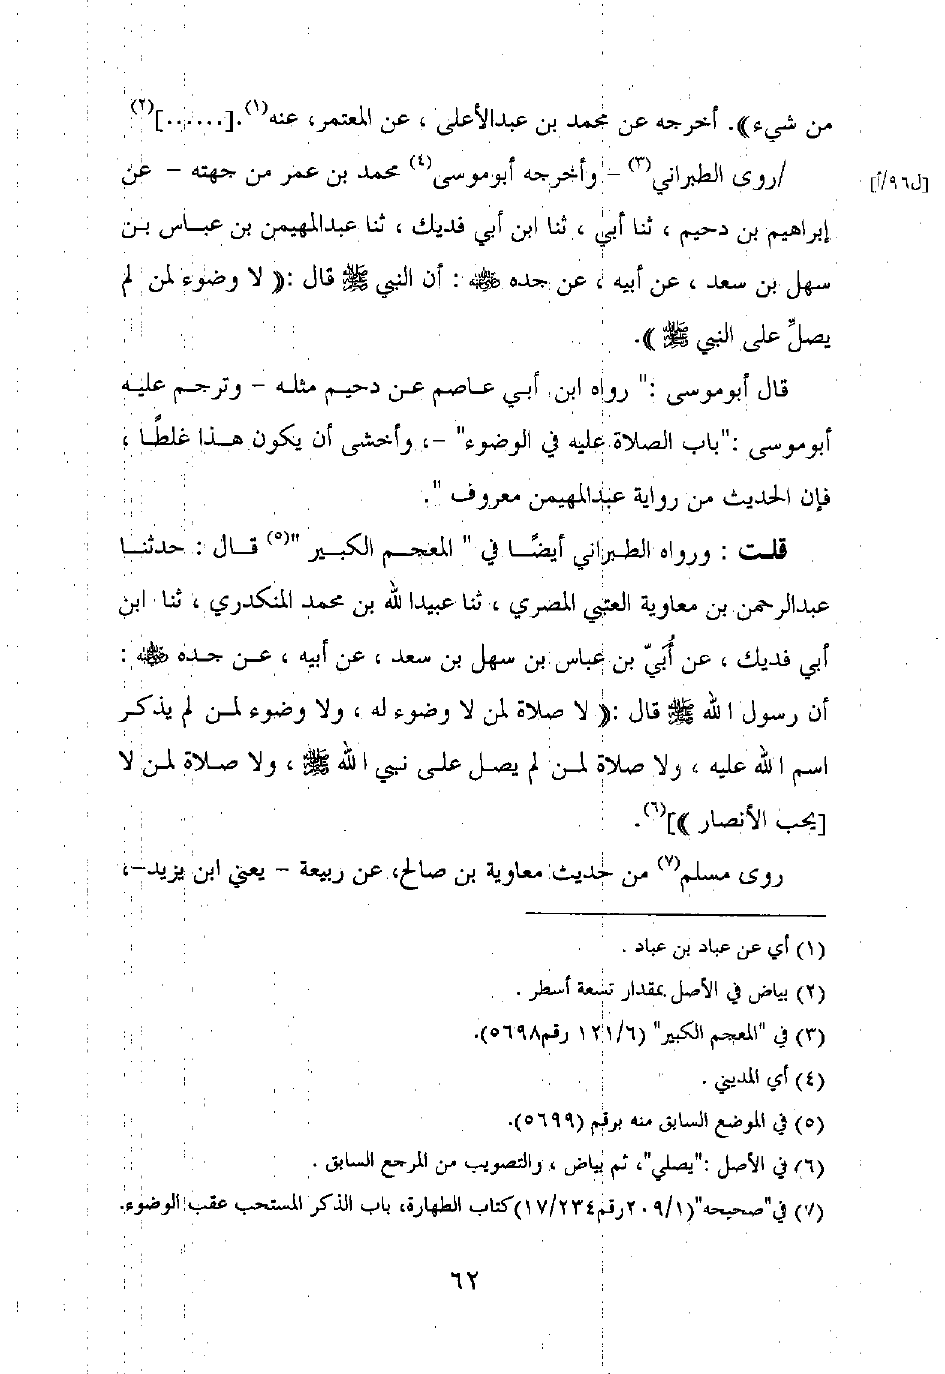 من شيء﴾. أخرجه عن محمد بن عبدالأعلى ، عن المعتمر، عنه(١).[......](٢)
/روى الطبراني(٣) – وأخرجه أبوموسى(٤) محمد بن عمر من جهته – عن [ل٩٦/أ]
إبراهيم بن دحيم ، ثنا أبي ، ثنا ابن أبي فديك ، ثنا عبدالمهيمن بن عباس بن
سهل بن سعد ، عن أبيه ، عن جده ﷺ : أن النبي ﷺ قال :﴿ لا وضوء لمن لم
يصلِّ على النبي ﷺ ﴾.
قال أبوموسى :" رواه ابن أبي عاصم عن دحيم مثله – وترجم عليه
أبوموسى :"باب الصلاة عليه في الوضوء" –، وأخشى أن يكون هذا غلطًا ،
فإن الحديث من رواية عبدالمهيمن معروف ".
قلت : ورواه الطبراني أيضًا في " المعجم الكبير "(٥) قال : حدثنا
عبدالرحمن بن معاوية العتبي المصري ، ثنا عبيدالله بن محمد المنكدري ، ثنا ابن
أبي فديك ، عن أُبَيّ بن عباس بن سهل بن سعد ، عن أبيه ، عن جده ﷺ :
أن رسول الله ﷺ قال :﴿ لا صلاة لمن لا وضوء له ، ولا وضوء لمن لم يذكر
اسم الله عليه ، ولا صلاة لمن لم يصل على نبي الله ﷺ ، ولا صلاة لمن لا
[يحب الأنصار ﴾](٦).
روى مسلم(٧) من حديث معاوية بن صالح، عن ربيعة – يعني ابن يزيد–،
(١) أي عن عباد بن عباد .
(٢) بياض في الأصل بمقدار تسعة أسطر .
(٣) في "المعجم الكبير" (١٢١/٦ رقم٥٦٩٨).
(٤) أي المديني .
(٥) في الموضع السابق منه برقم (٥٦٩٩).
(٦) في الأصل :"يصلي"، ثم بياض ، والتصويب من المرجع السابق .
(٧) في"صحيحه"(٢٠٩/١رقم١٧/٢٣٤)كتاب الطهارة، باب الذكر المستحب عقب الوضوء.
٦٢